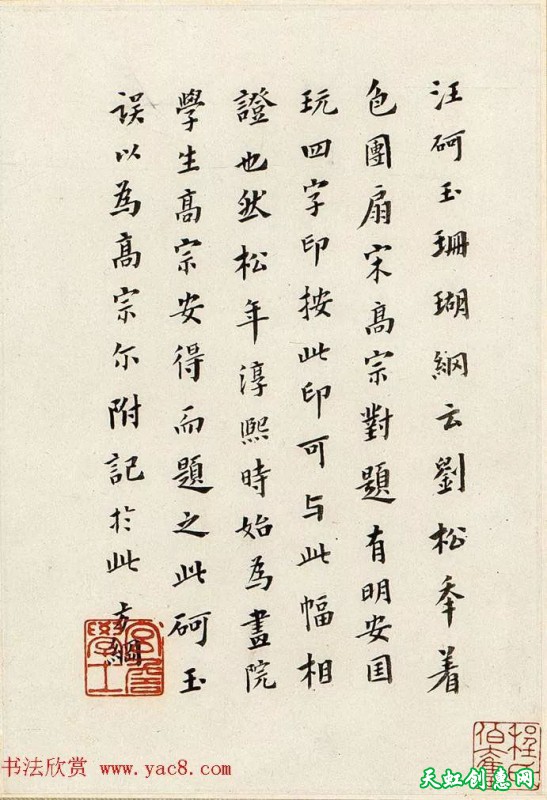 汪砢玉珊瑚網云劉松年着
色團扇宋髙宗對題有明安国
玩四字印按此印可与此幅相
證也然松年淳熙時始為畫院
學生髙宗安得而題之此砢玉
误以為髙宗尔附記於此方綱
書法欣赏 www.yac8.com
天虹创意网